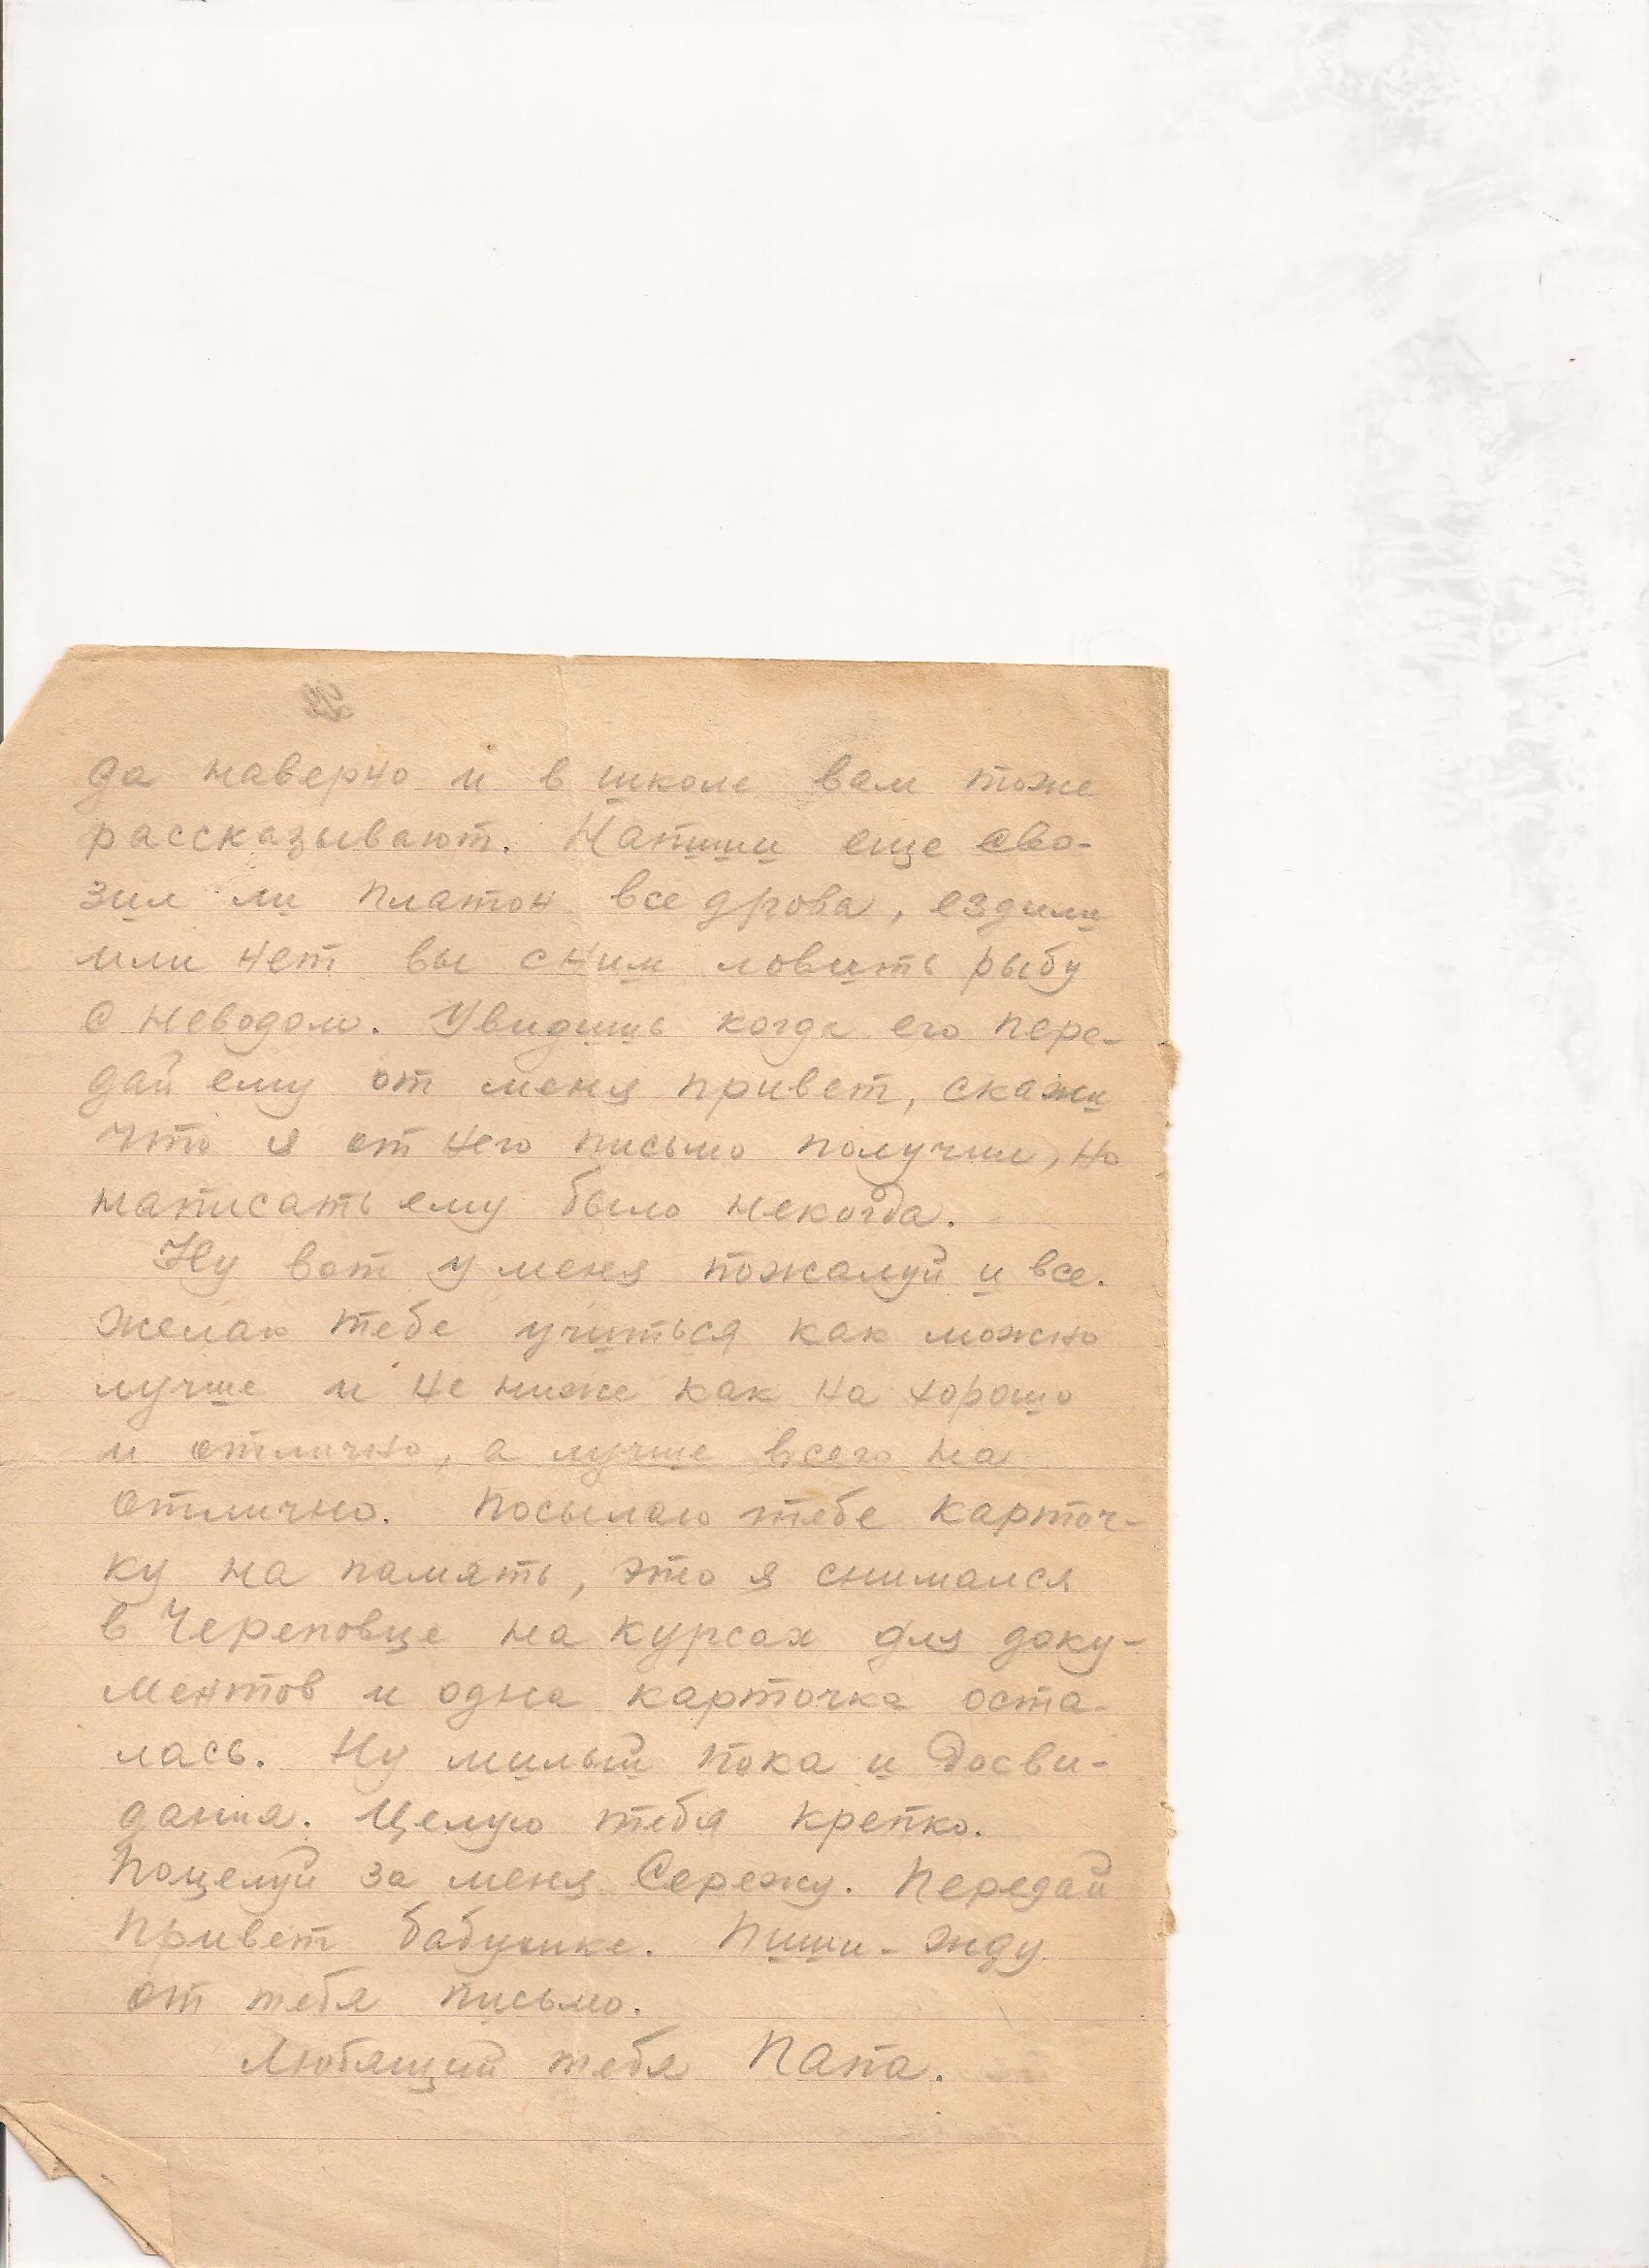 да наверно и в школе вам тоже
рассказывают. Напиши еще сво-
зил ли Платон все дрова, ездили
или нет вы сним ловить рыбу
с неводом. Увидишь когда его пере-
дай ему от меня привет, скажи
что я от него письмо получил, но
написать ему было некогда.
Ну вот у меня пожалуй и все.
Желаю тебе учиться как можно
лучше и не ниже как на хорошо
и отлично, а лучше всего на
отлично. Посылаю тебе карточ-
ку на память, это я снимался
в Череповце на курсах для доку-
ментов и одна карточка оста-
лась. Ну милый пока и досви-
дания. Целую тебя крепко.
Поцелуй за меня Сережу. Передай
привет бабушке. Пиши - жду
от тебя письмо.
Любящий тебя Папа.